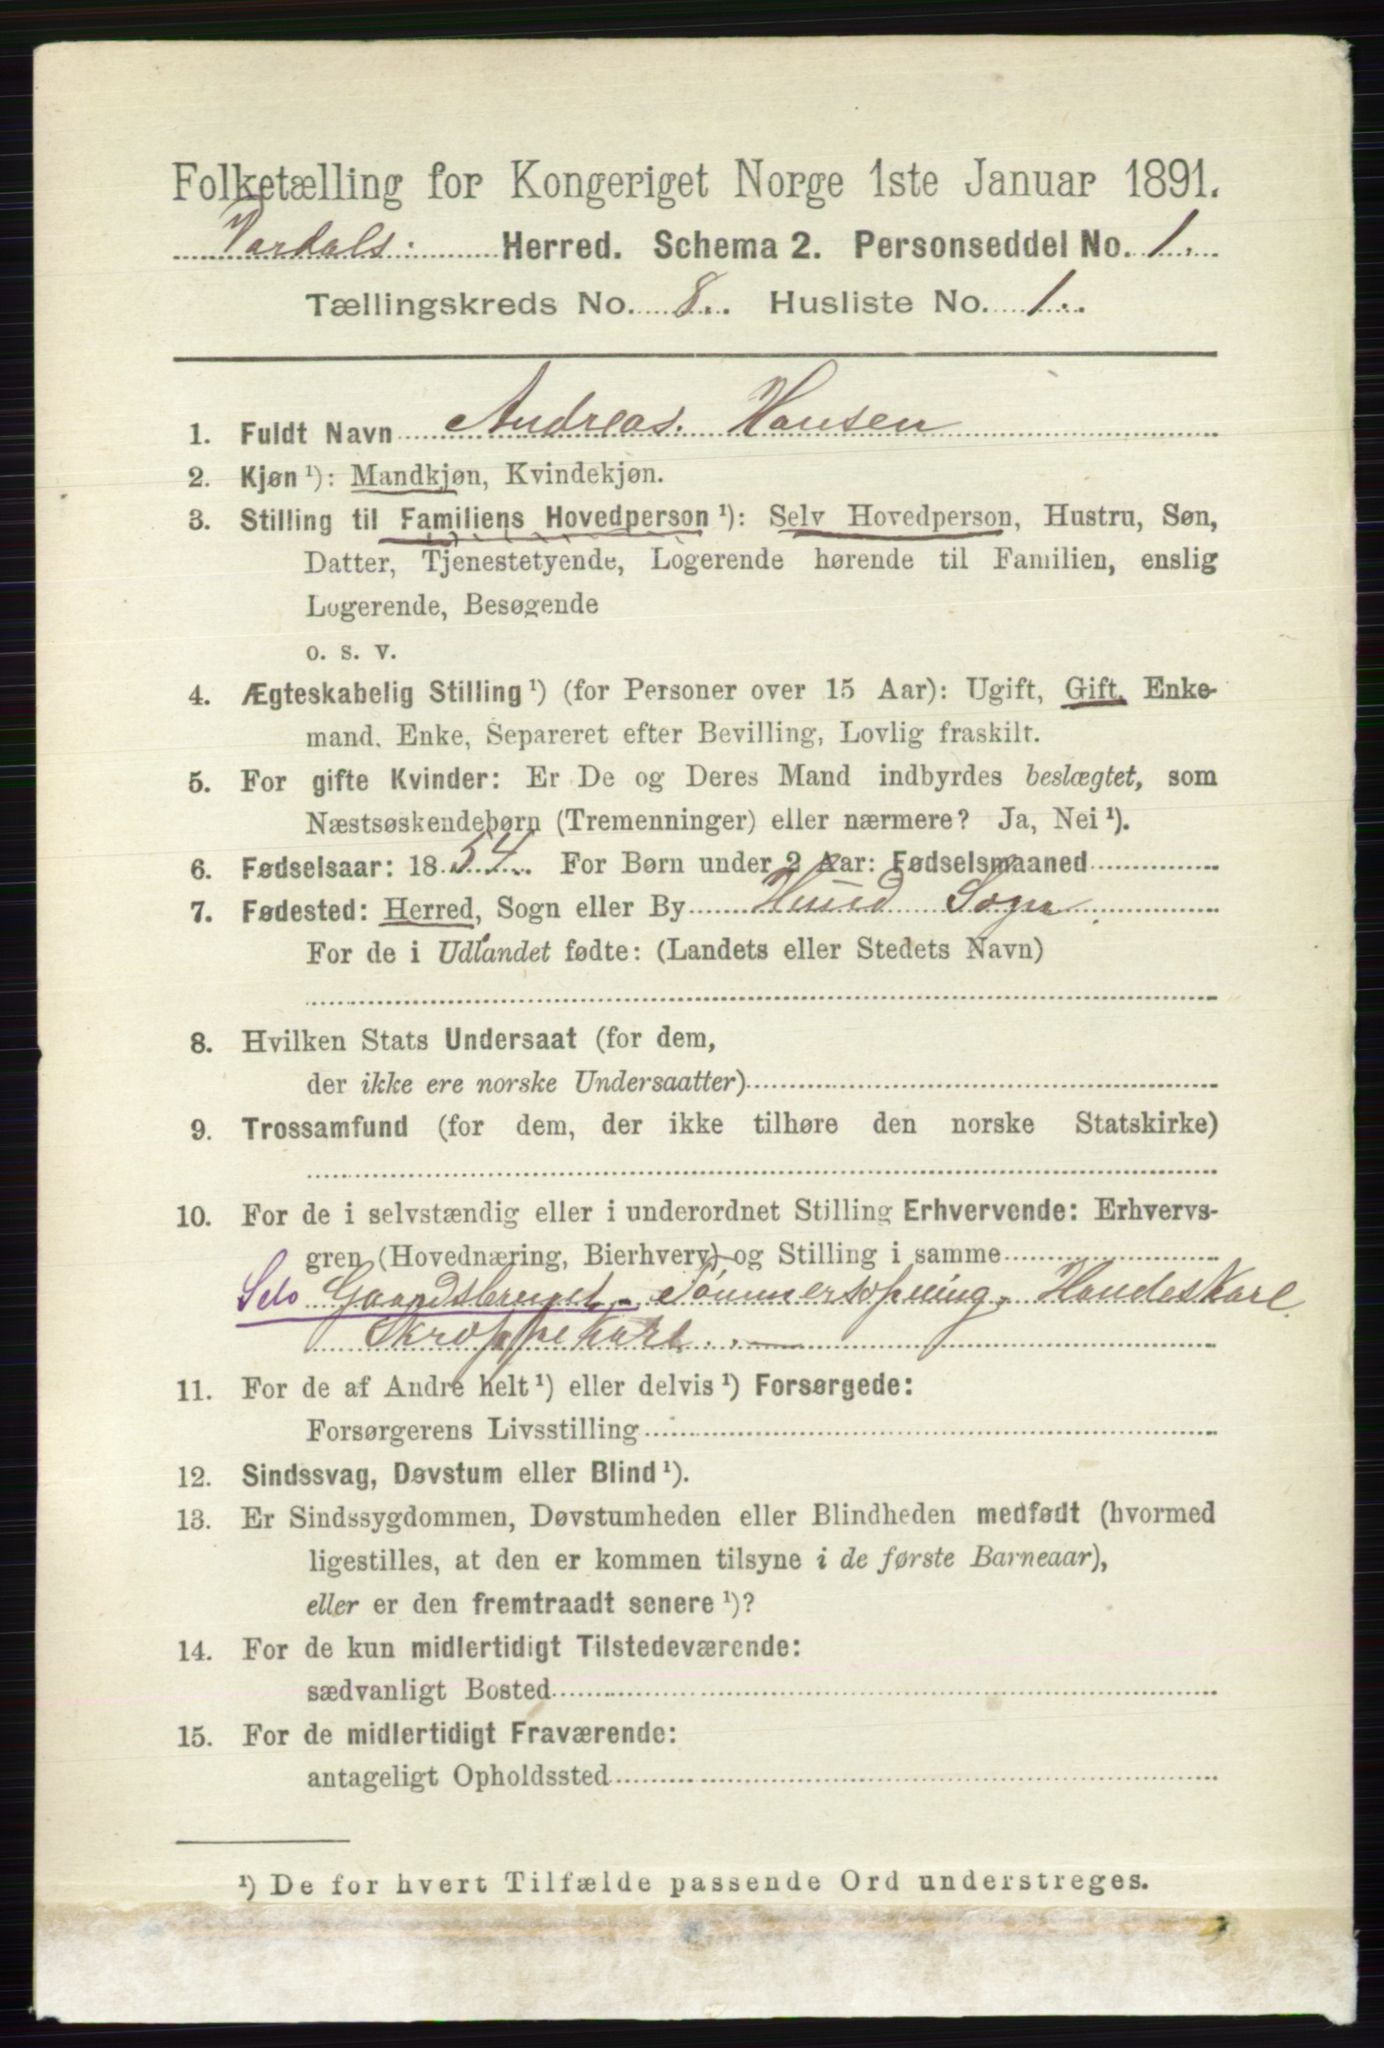 Folketælling for Kongeriget Norge 1ste Januar 1891.
Vardals Herred. Schema 2. Personseddel No. 1.
Tællingskreds No. 8. Husliste No. 1.
1. Fuldt Navn Andreas. Hansen
2. Kjøn ¹): Mandkjøn, Kvindekjøn.
3. Stilling til Familiens Hovedperson ¹): Selv Hovedperson, Hustru, Søn,
Datter, Tjenestetyende, Logerende hørende til Familien, enslig
Logerende, Besøgende
o. s. v.
4. Ægteskabelig Stilling ¹) (for Personer over 15 Aar): Ugift, Gift, Enke-
mand, Enke, Separeret efter Bevilling, Lovlig fraskilt.
5. For gifte Kvinder: Er De og Deres Mand indbyrdes beslægtet, som
Næstsøskendebørn (Tremenninger) eller nærmere? Ja, Nei ¹).
6. Fødselsaar: 1854. For Børn under 2 Aar: Fødselsmaaned
7. Fødested: Herred, Sogn eller By Hund Sogn
For de i Udlandet fødte: (Landets eller Stedets Navn)
8. Hvilken Stats Undersaat (for dem,
der ikke ere norske Undersaatter)
9. Trossamfund (for dem, der ikke tilhøre den norske Statskirke)
10. For de i selvstændig eller i underordnet Stilling Erhvervende: Erhvervs-
gren (Hovednæring, Bierhverv) og Stilling i samme
Selv Gaardsbruget - Handeskarl
Skroppekarl
11. For de af Andre helt ¹) eller delvis ¹) Forsørgede:
Forsørgerens Livsstilling
12. Sindssvag, Døvstum eller Blind ¹).
13. Er Sindssygdommen, Døvstumheden eller Blindheden medfødt (hvormed
ligestilles, at den er kommen tilsyne i de første Barneaar),
eller er den fremtraadt senere ¹)?
14. For de kun midlertidigt Tilstedeværende:
sædvanligt Bosted
15. For de midlertidigt Fraværende:
antageligt Opholdssted
¹) De for hvert Tilfælde passende Ord understreges.